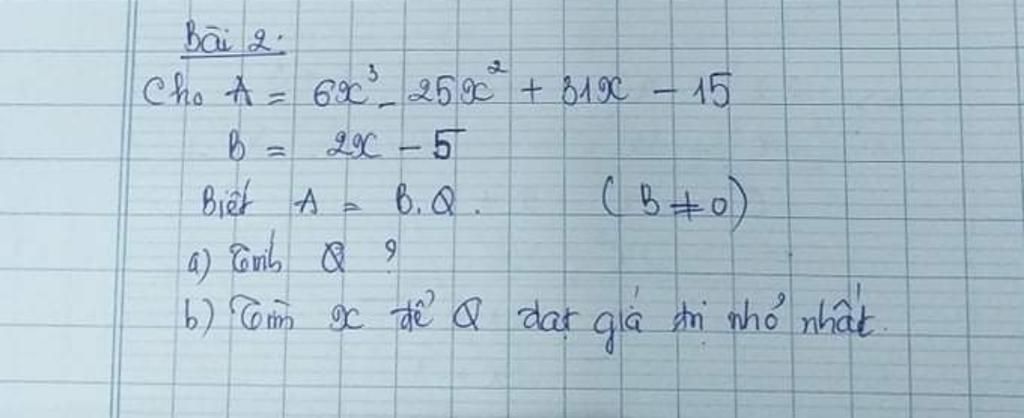 Bài 2:
Cho A = 6x³ - 25x² + 31x - 15
B = 2x - 5
Biết A = B.Q. (B ≠ 0)
a) Tính Q ?
b) Tìm x để Q đạt giá trị nhỏ nhất.